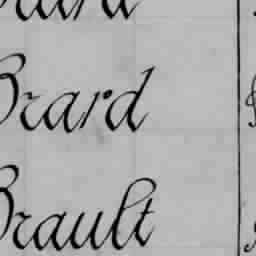 Brard
Brault